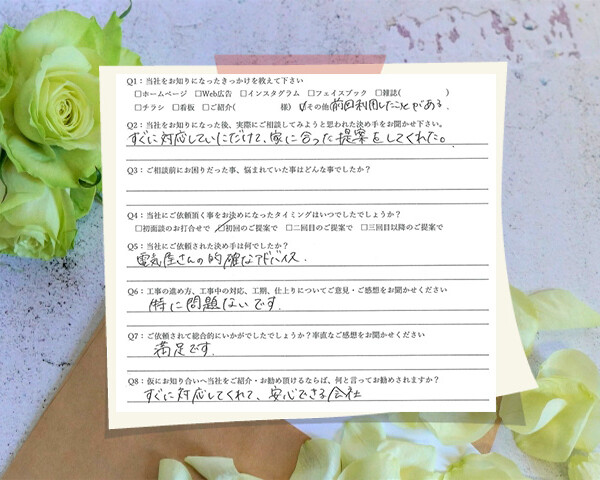 Q1：当社をお知りになったきっかけを教えて下さい
□ホームページ □Web広告 □インスタグラム □フェイスブック □雑誌( )
□チラシ □看板 □ご紹介( 様) ☑その他(前回利用したことがある.
Q2：当社をお知りになった後、実際にご相談してみようと思われた決め手をお聞かせ下さい。
すぐに対応していただけて、家に合った提案をしてくれた。
Q3：ご相談前にお困りだった事、悩まれていた事はどんな事でしたか？
Q4：当社にご依頼頂く事をお決めになったタイミングはいつでしたでしょうか？
□初面談のお打合せで ☑初回のご提案で □二回目のご提案で □三回目以降のご提案で
Q5：当社にご依頼された決め手は何でしたか？
電気屋さんの的確なアドバイス.
Q6：工事の進め方、工事中の対応、工期、仕上りについてご意見・ご感想をお聞かせください
特に問題ないです.
Q7：ご依頼されて総合的にいかがでしたでしょうか？率直なご感想をお聞かせください
満足です.
Q8：仮にお知り合いへ当社をご紹介・お勧め頂けるならば、何と言ってお勧めされますか？
すぐに対応してくれて、安心できる会社